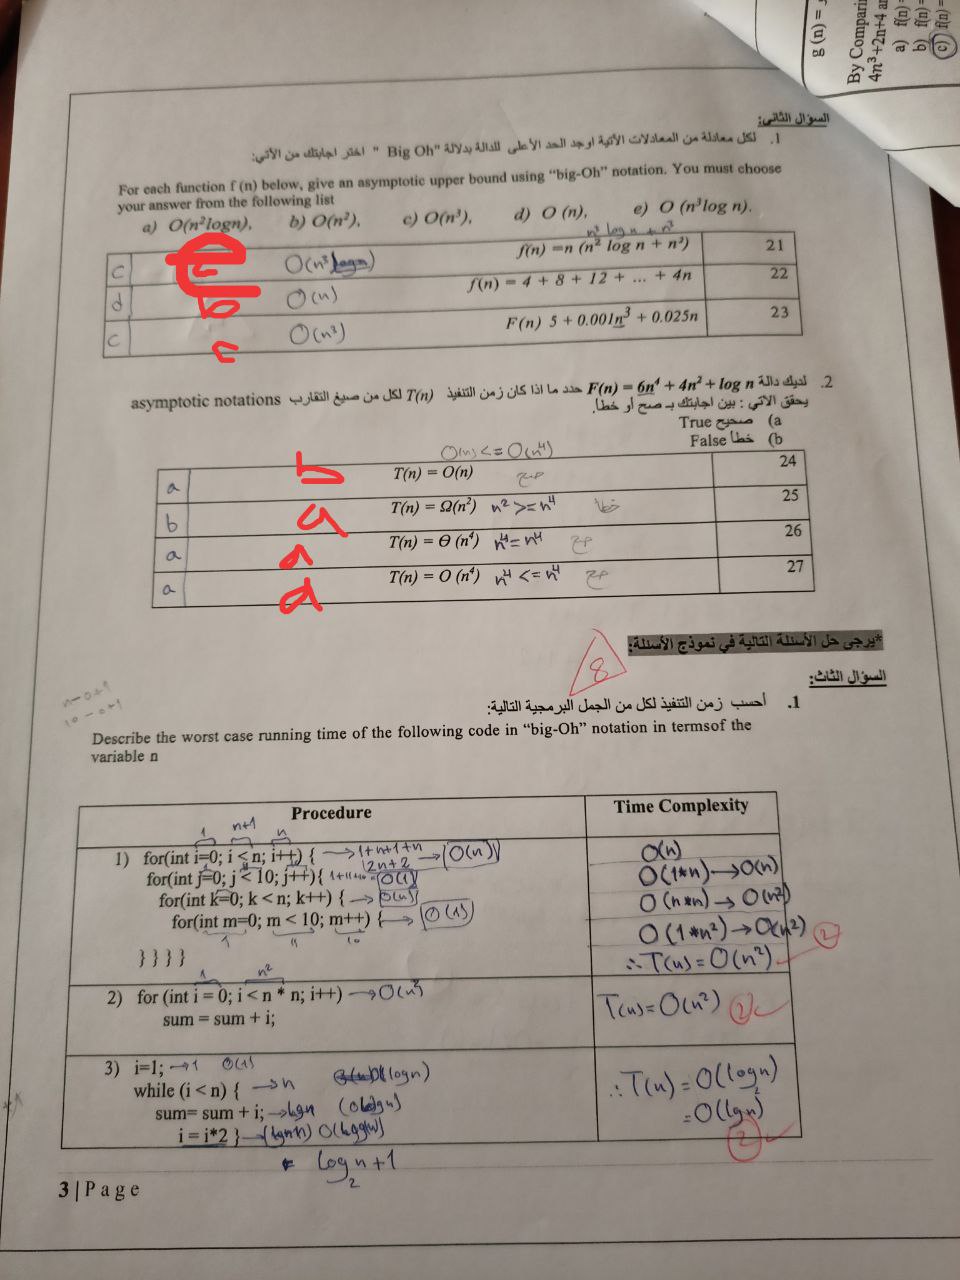 g (n) =
By Compari
4n³+2n+4 a
a) f(n)
b) f(n) =
c) f(n) =
السؤال الثاني:
1. لكل معادلة من المعادلات الآتية اوجد الحد الأعلى للدالة بدلالة "Big Oh" اختر اجابتك من الآتي:
For each function f (n) below, give an asymptotic upper bound using “big-Oh” notation. You must choose
your answer from the following list
a) O(n²logn), b) O(n²), c) O(n³), d) O (n), e) O (n³log n).
n³ log n + n³
c O(n³ logn) f(n) =n (n² log n + n²) 21
d b O(n) f(n) = 4 + 8 + 12 + ... + 4n 22
c c O(n³) F(n) 5 + 0.001n³ + 0.025n 23
2. لديك دالة F(n) = 6n⁴ + 4n² + log n حدد ما اذا كان زمن التنفيذ T(n) لكل من صيغ التقارب asymptotic notations
يحقق الاتي : بين اجابتك بـ صح أو خطأ.
a) صحيح True
b) خطأ False
O(n) <= O(n⁴)
a b T(n) = O(n) صح 24
b a T(n) = Ω(n²) n² >= n⁴ خطأ 25
a a T(n) = Θ (n⁴) n⁴ = n⁴ صح 26
a a T(n) = O (n⁴) n⁴ <= n⁴ صح 27
*يرجى حل الأسئلة التالية في نموذج الأسئلة:
8
السؤال الثالث:
n-0+1
10-0+1
1. أحسب زمن التنفيذ لكل من الجمل البرمجية التالية:
Describe the worst case running time of the following code in “big-Oh” notation in termsof the
variable n
Procedure Time Complexity
1 n+1 n
1) for(int i=0; i < n; i++) { → 1+n+1+n O(n)
2n+2 → O(n)
for(int j=0; j < 10; j++){ 1+11+10 = O(1) O(1*n) → O(n)
for(int k=0; k < n; k++) { → O(n) O (n*n) → O(n²)
for(int m=0; m < 10; m++) { → O(1) O(1*n²) → O(n²) 2
1 11 10
} } } } ∴ T(n) = O(n²)
1 n²
2) for (int i = 0; i < n * n; i++) → O(n²) T(n) = O(n²) 2
sum = sum + i;
3) i=1; → 1 O(1)
while (i < n) { → n (logn) ∴ T(n) = O(log₂n)
sum= sum + i; → lgn (O(logn)) = O(lgn)
i = i*2 } → (lgn) 2
log₂n+1
3 | P a g e